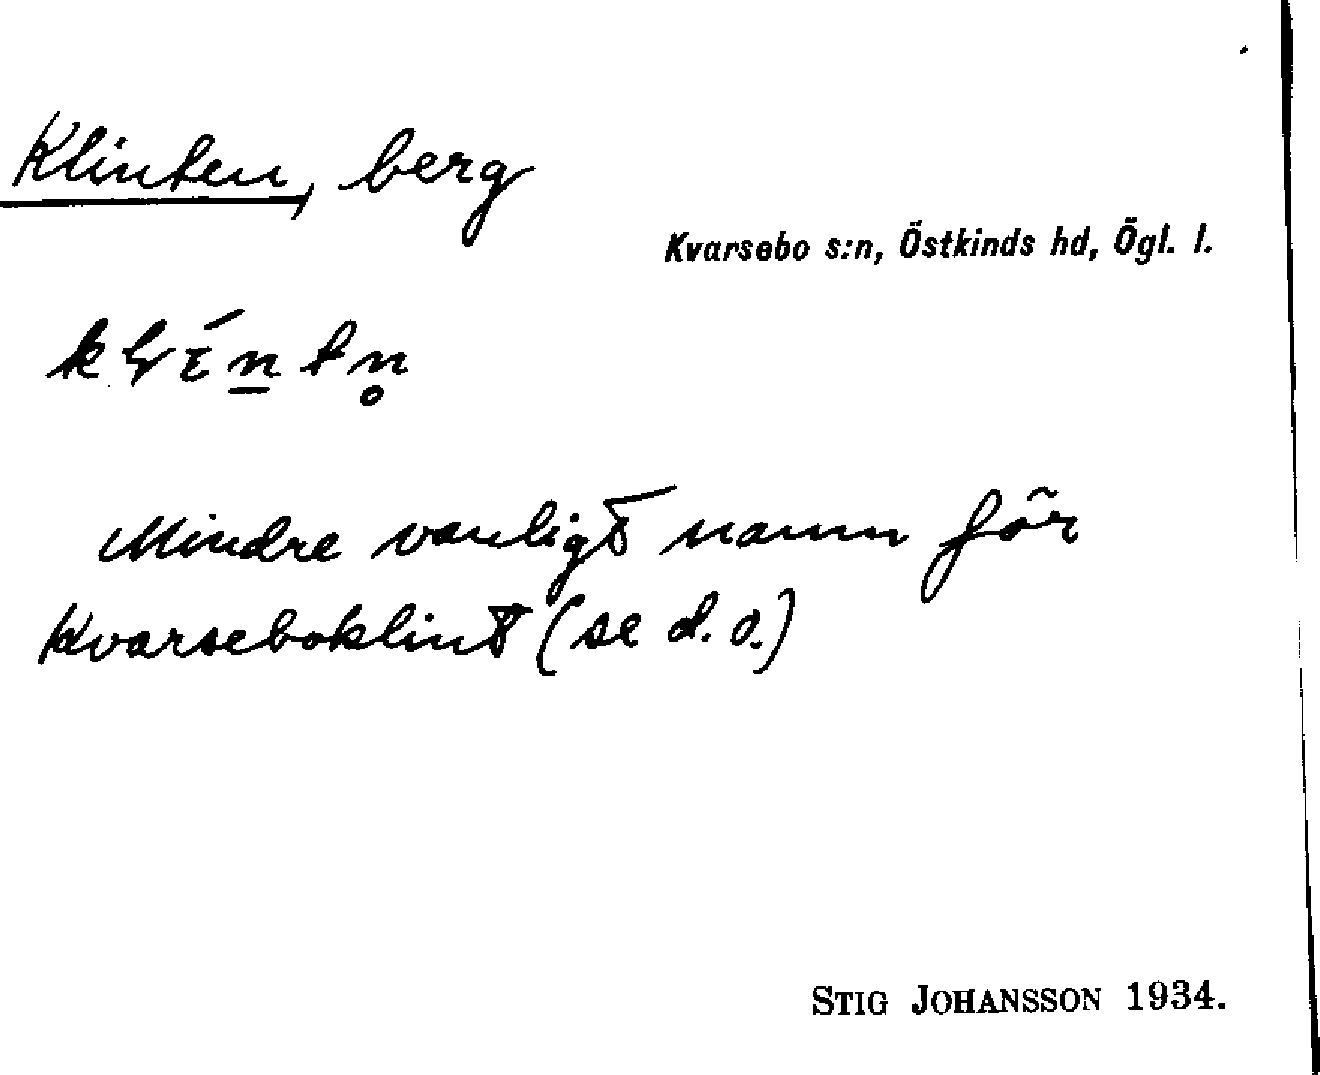 Klinten, berg
Kvarsebo s:n, Östkinds hd, Ögl. l.
Mindre vanligt namn för
Kvarseboklint (se d. o.)
STIG JOHANSSON 1934.